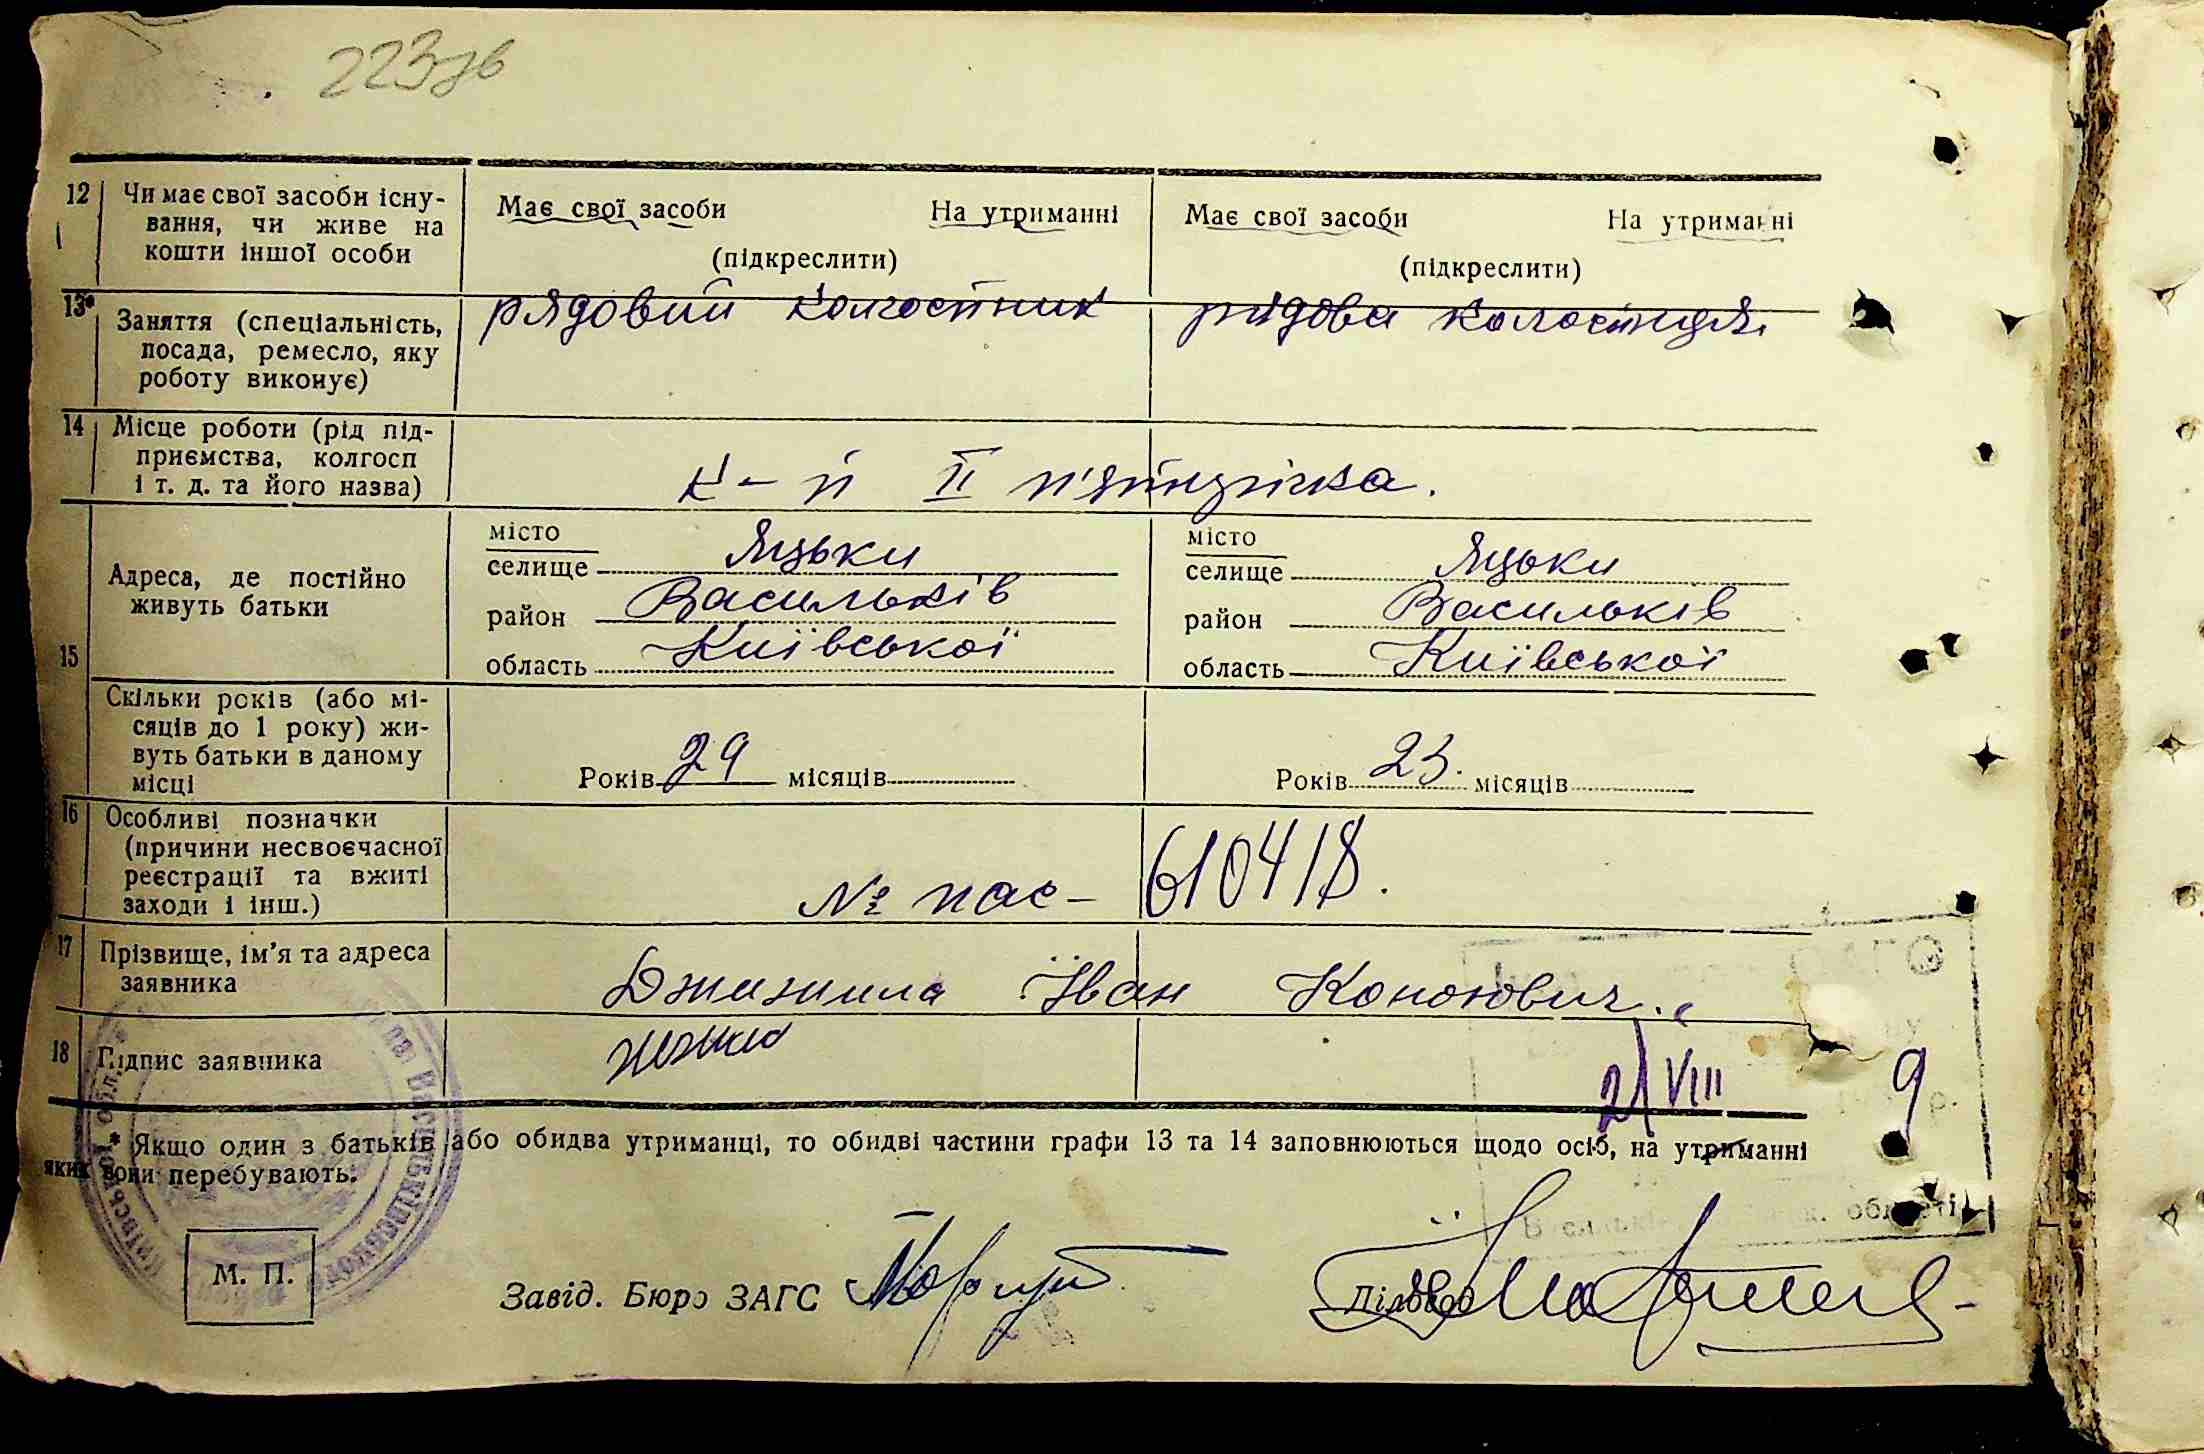 223зв
12 Чи має свої засоби існу-
вання, чи живе на
кошти іншої особи
Має свої засоби На утриманні
(підкреслити)
Має свої засоби На утриманні
(підкреслити)
13* Заняття (спеціальність,
посада, ремесло, яку
роботу виконує)
рядовий колгоспник
рядова колгоспниця
14 Місце роботи (рід під-
приємства, колгосп
і т. д. та його назва)
к-п ІІ п'ятирічка.
15 Адреса, де постійно
живуть батьки
місто
селище Яцьки
район Васильків
область Київської
місто
селище Яцьки
район Васильків
область Київської
Скільки років (або мі-
сяців до 1 року) жи-
вуть батьки в даному
місці
Років 29 місяців
Років 23. місяців
16 Особливі позначки
(причини несвоєчасної
реєстрації та вжиті
заходи і інш.)
№ пас- 610418.
17 Прізвище, ім'я та адреса
заявника
Іван
18 Підпис заявника
21 VIII 9
* Якщо один з батьків або обидва утриманці, то обидві частини графи 13 та 14 заповнюються щодо осіб, на утриманні
яких вони перебувають.
М. П.
Завід. Бюро ЗАГС
Діловод